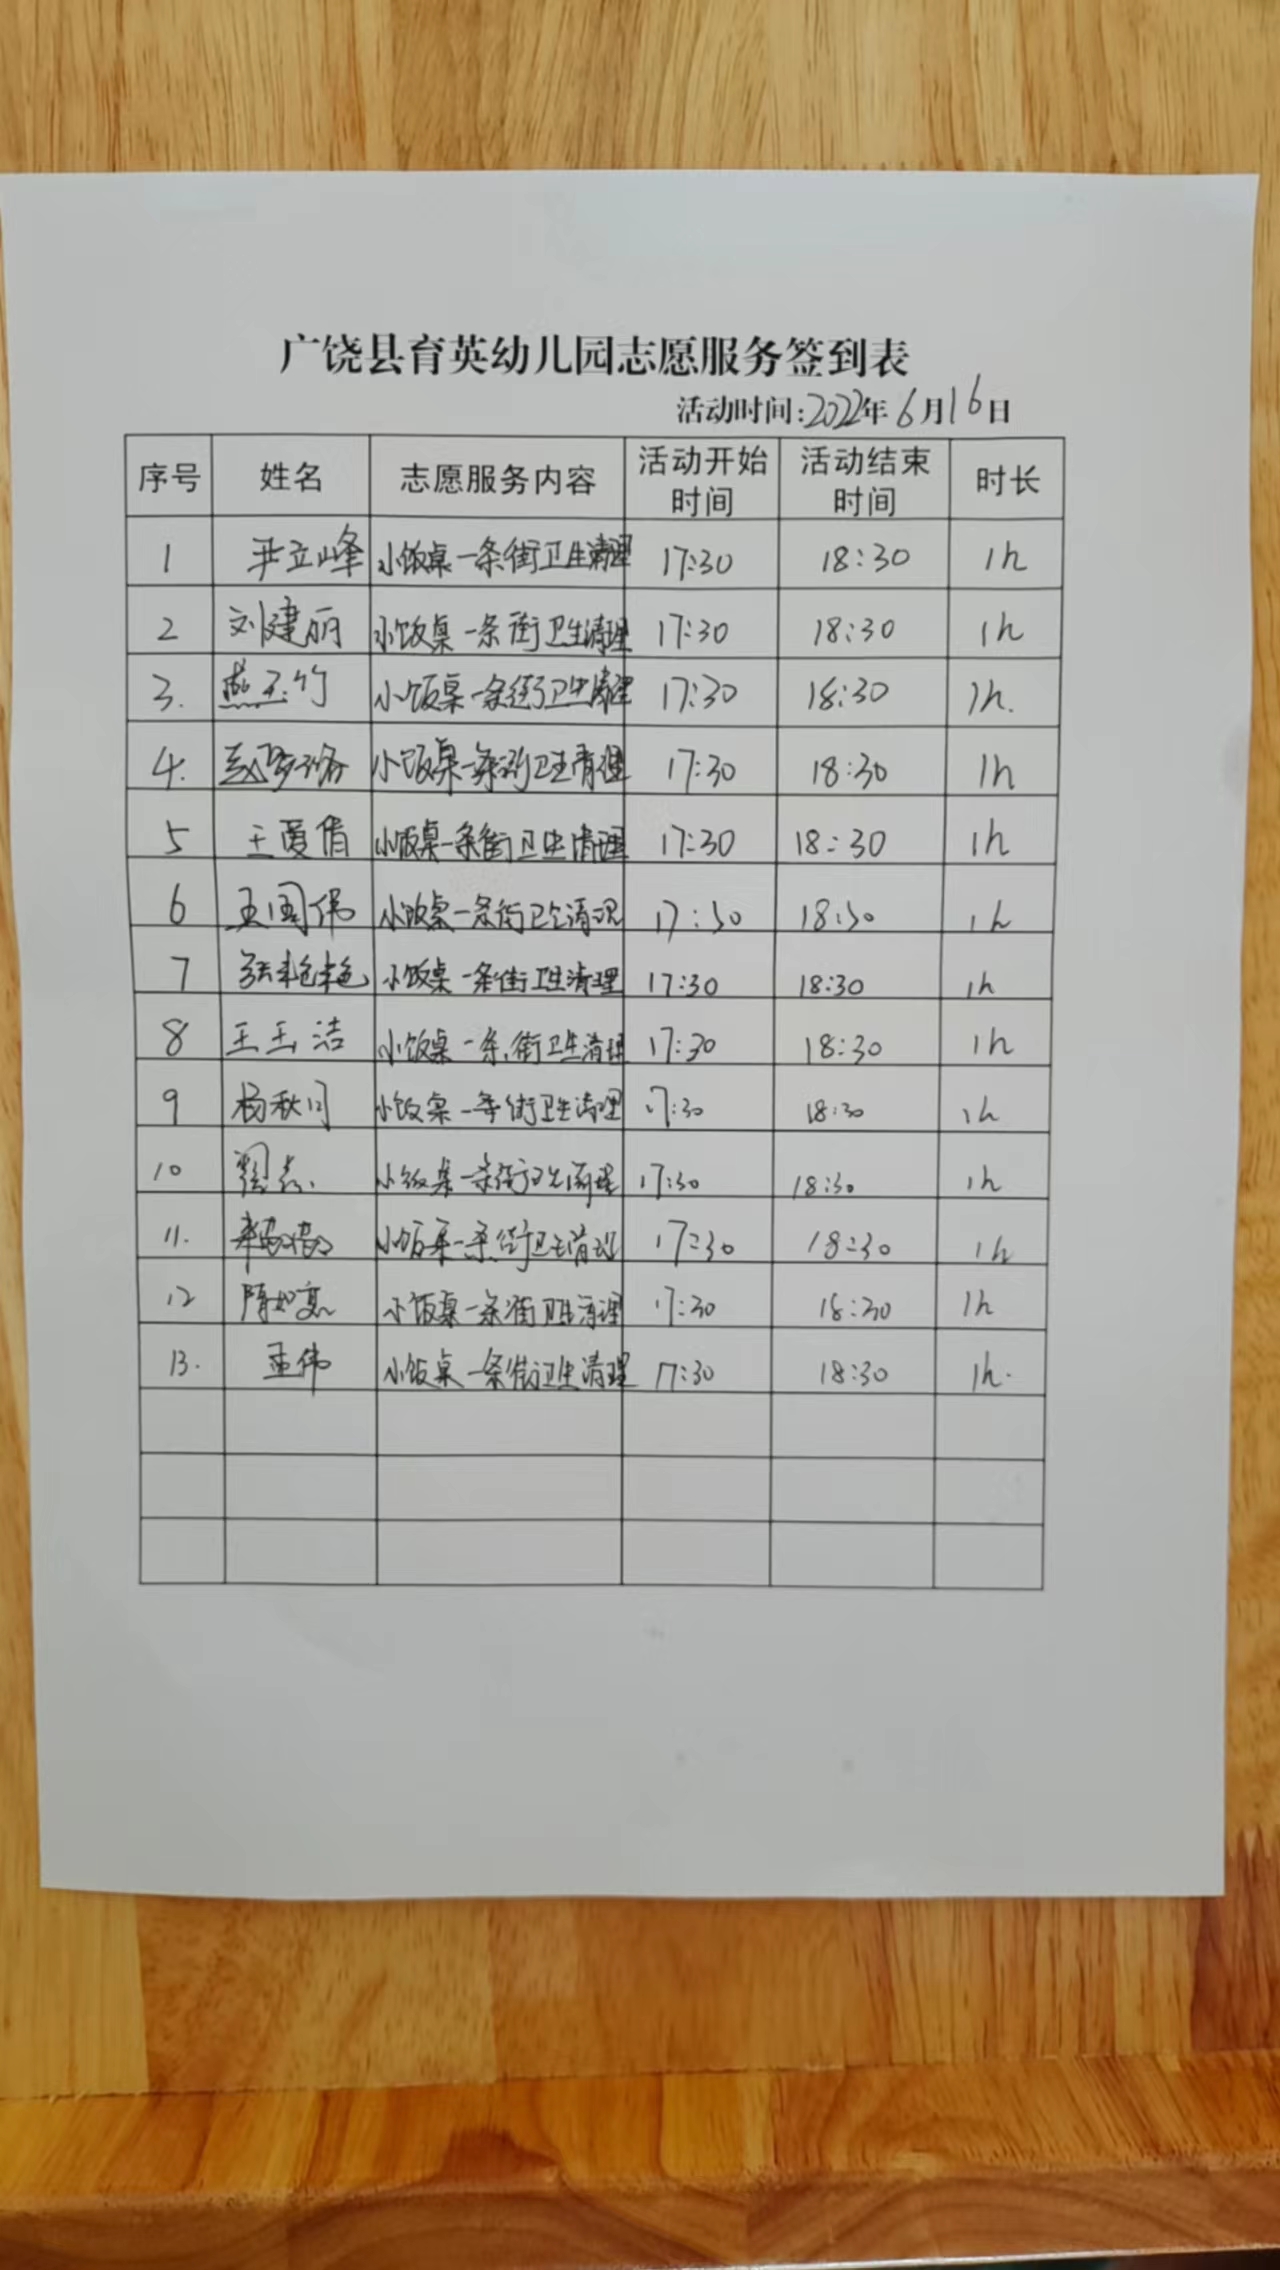 广饶县育英幼儿园志愿服务签到表
活动时间:2022年6月16日
序号 姓名 志愿服务内容 活动开始时间 活动结束时间 时长
1 尹立峰 小饭桌一条街卫生清理 17:30 18:30 1h
2 刘建丽 小饭桌一条街卫生清理 17:30 18:30 1h
3. 燕玉竹 小饭桌一条街卫生清理 17:30 18:30 1h.
4. 小饭桌一条街卫生清理 17:30 18:30 1h
5 王夏倩 小饭桌一条街卫生清理 17:30 18:30 1h
6 王国伟 小饭桌一条街卫生清理 17:30 18:30 1h
7 张艳艳 小饭桌一条街卫生清理 17:30 18:30 1h
8 王玉洁 小饭桌一条街卫生清理 17:30 18:30 1h
9 杨秋月 小饭桌一条街卫生清理 17:30 18:30 1h
10 小饭桌一条街卫生清理 17:30 18:30 1h
11. 小饭桌一条街卫生清理 17:30 18:30 1h
12 小饭桌一条街卫生清理 17:30 18:30 1h
13. 孟伟 小饭桌一条街卫生清理 17:30 18:30 1h.